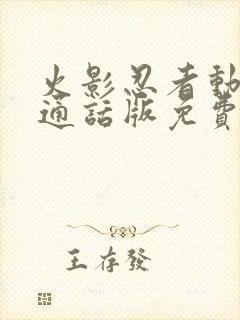 火影忍者動
通話版免費
王存發